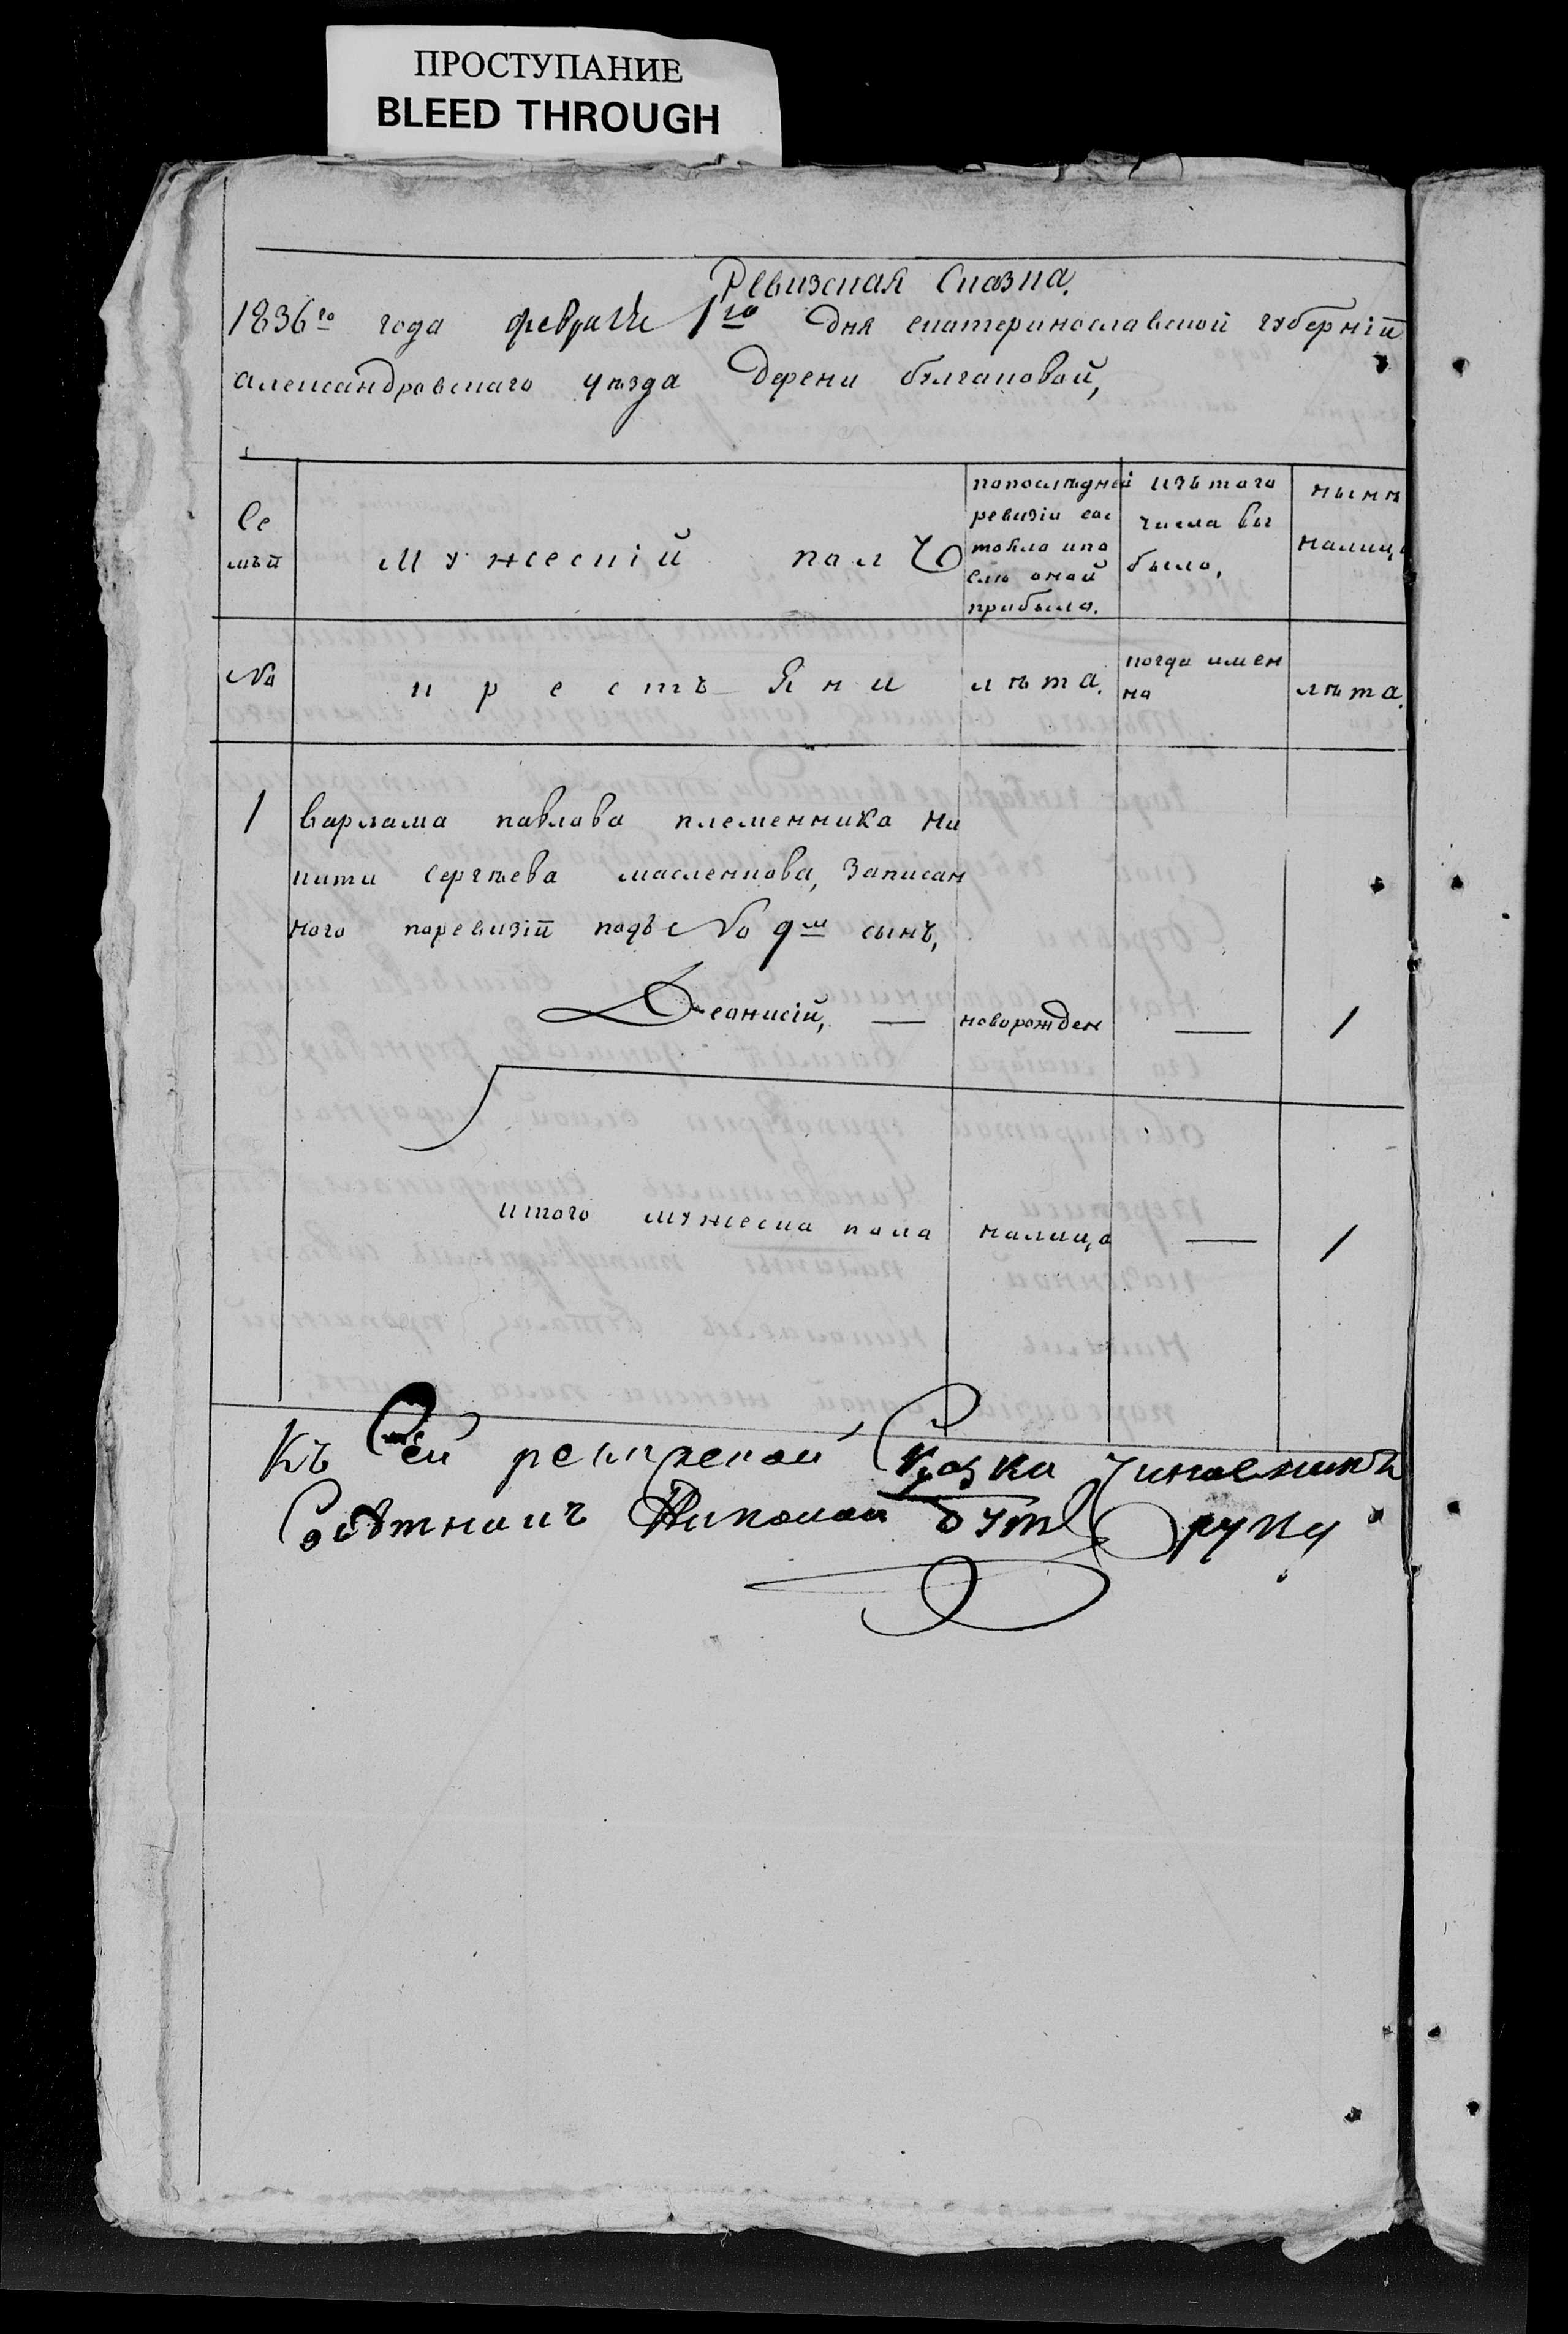 ПРОСТУПАНИЕ
BLEED THROUGH
Ревизская Сказка.
1836го года февраля 1го дня екатеринославской губерніи
александровскаго уезда Дерени булгаковой,
Се
мьи
Мужескій полъ
попоследней
ревизіи сос
тояло ипо
слю оной
прибыло.
изътого
числа вы
было,
ныне
налицо
№
крестьЯни
лета.
когда имен
но
лета.
1 варлама павлова племенника Ни
киты Сергеева масленкова, Записан
ного поревизіи подъ № 9м сынъ,
Деонисій, — новорожден — 1
итого мужеска пола налицо — 1
Къ Сей ревизской Сказки Чиновникъ
Советникъ Николай руку